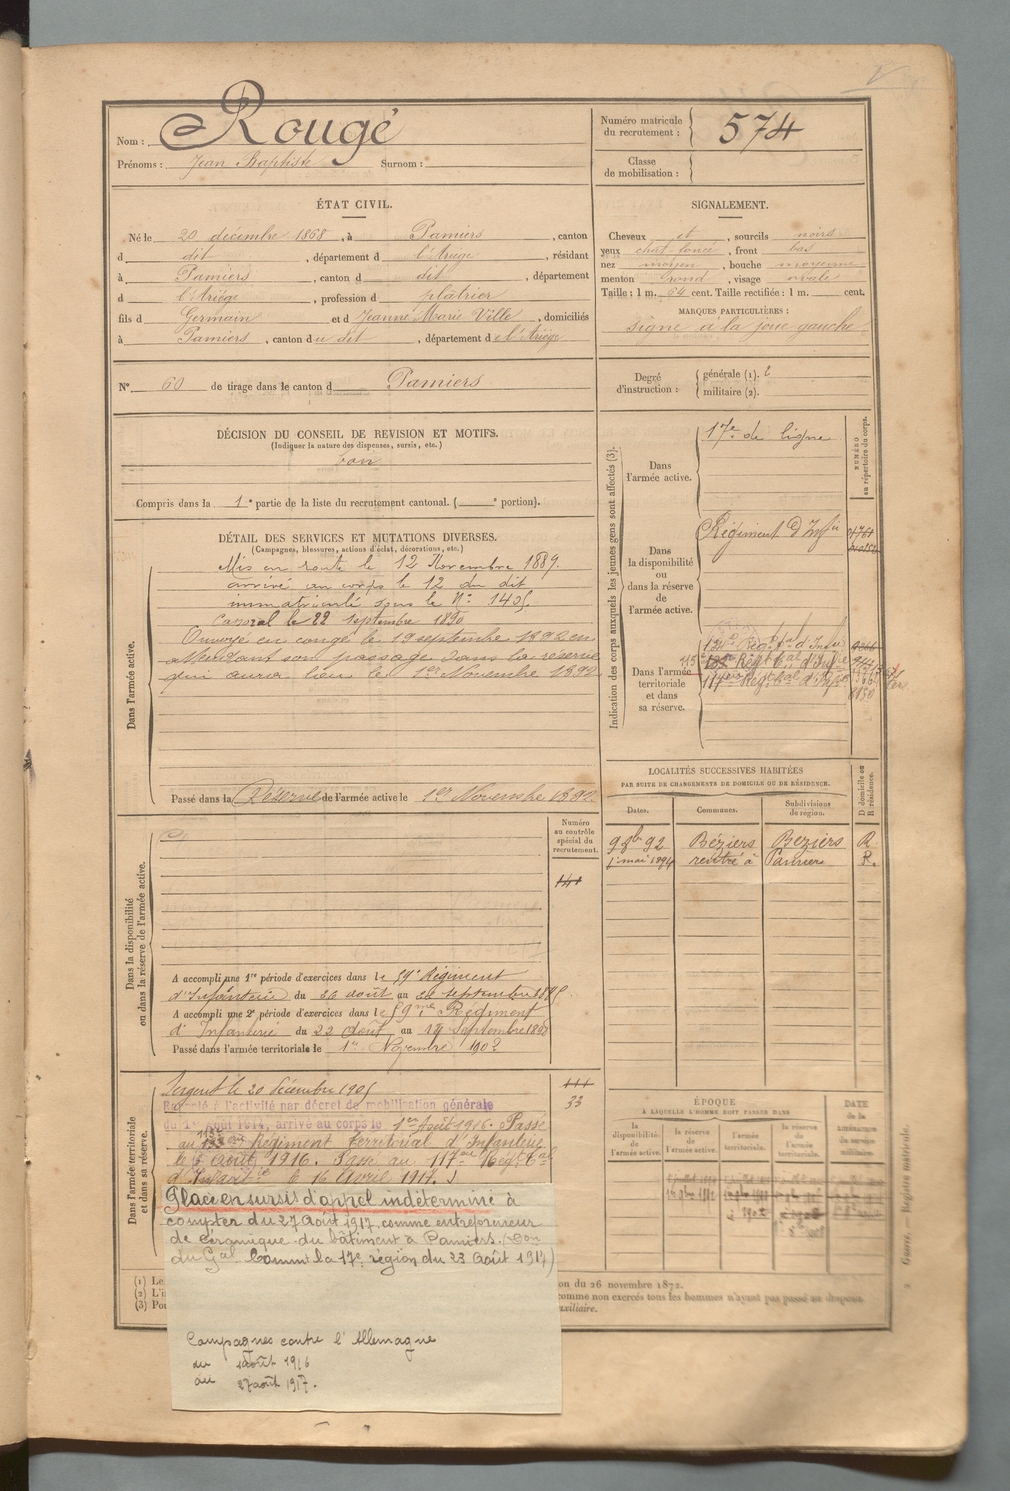 Nom : Rougé
Prénoms : Jean Baptiste Surnom :
Numéro matricule du recrutement : 574
Classe de mobilisation :
ÉTAT CIVIL.
Né le 20 décembre 1868, à Pamiers, canton
d dit, département d l'Ariège, résidant
à Pamiers, canton d dit, département
d l'Ariège, profession d plâtrier
fils d Germain et d Jeanne Marie Ville, domiciliés
à Pamiers, canton du dit, département de l'Ariège
SIGNALEMENT.
Cheveux et, sourcils noirs
yeux chat foncé, front bas
nez moyen, bouche moyenne
menton rond, visage ovale
Taille : 1 m. 64 cent. Taille rectifiée : 1 m. cent.
MARQUES PARTICULIÈRES :
signe à la joue gauche
N° 60 de tirage dans le canton d Pamiers
Degré d'instruction : générale (1). 2
militaire (2).
DÉCISION DU CONSEIL DE REVISION ET MOTIFS.
(Indiquer la nature des dispenses, sursis, etc.)
bon
Compris dans la 1e partie de la liste du recrutement cantonal. ( e portion).
DÉTAIL DES SERVICES ET MUTATIONS DIVERSES.
(Campagnes, blessures, actions d'éclat, décorations, etc.)
Dans l'armée active.
Mis en route le 12 Novembre 1889.
arrivé au corps le 12 du dit
immatriculé sous le N° 1405.
Caporal le 22 septembre 1890
Envoyé en congé le 19 septembre 1892 en
attendant son passage dans la réserve
qui aura lieu le 1er Novembre 1892
Passé dans la Réserve de l'armée active le 1er Novembre 1892.
Indication des corps auxquels les jeunes gens sont affectés (3).
NUMÉRO au répertoire du corps.
Dans l'armée active.
17e de ligne
Dans la disponibilité ou dans la réserve de l'armée active.
Régiment d'Infie
Dans l'armée territoriale et dans sa réserve.
LOCALITÉS SUCCESSIVES HABITÉES
PAR SUITE DE CHANGEMENTS DE DOMICILE OU DE RÉSIDENCE.
Dates. Communes. Subdivisions de région. D domicile ou R résidence.
9 8bre 92 Béziers Béziers R
1er mai 1894 rentré à Pamiers R.
Numéro au contrôle spécial du recrutement.
Dans la disponibilité ou dans la réserve de l'armée active.
A accompli une 1re période d'exercices dans le 59e Régiment
d'Infanterie du 20 août au septembre
A accompli une 2e période d'exercices dans le 59me Régiment
d'Infanterie du 22 Août au 19 Septembre
Passé dans l'armée territoriale le 1er Novembre 1902
Dans l'armée territoriale et dans sa réserve.
33
Sergent le 20 Décembre 1905
Rappelé à l'activité par décret de mobilisation générale
du 1er Août 1914, arrivé au corps le 1er Août 1916. Passé
au Régiment territorial d'Infanterie
le 5 Août 1916. Passé au 117me Régt tal
d'Infanterie le 16 Avril 1917.
Placé en sursis d'appel indéterminé à
compter du 27 Août 1917, comme entrepreneur
de céramique du bâtiment à Pamiers. (Don
du Gal Commt la 17e région du 23 Août 1917)
Campagnes contre l'Allemagne
du 1 août 1916
au 27 août 1917.
ÉPOQUE
À LAQUELLE L'HOMME DOIT PASSER DANS
la disponibilité de l'armée active. la réserve de l'armée active. l'armée territoriale. la réserve de l'armée territoriale.
DATE de la LIBÉRATION du service militaire.
(1) Le
(2) L'i
(3) Pou
on du 26 novembre 1872.
comme non exercés tous les hommes n'ayant pas passé au
auxiliaire.